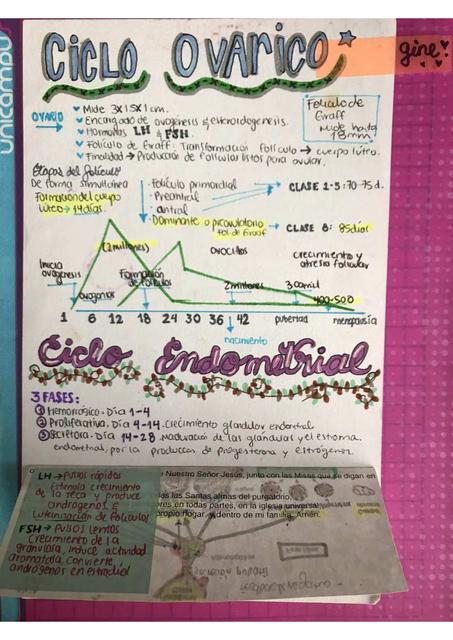 CICLO OVARICO
gine!
unicampu
OVARIO
Mide 3x1.5x1cm.
Encargado de ovogénesis y esteroidogenesis.
Hormonas LH & FSH.
Folículo de Graff: Transformación folículo → cuerpo lúteo.
Finalidad → Producción de folículos listos para ovular.
Folículo de
Graff
mide hasta
18mm
Etapas del folículo
De forma simultánea
Formación del cuerpo
lúteo → 14 días.
· Folículo primordial
· Preantral
· antral
· Dominante o preovulatorio
Fol. de Graaf
CLASE 1-5: 70-75 d.
CLASE 8: 85 días
(7 millones)
ovocitos
crecimiento y
atresia folicular
Inicia
ovogenesis
Formación
de folículos
ovogonias
2 millones
300 mil
400-500
1 6 12 18 24 30 36 42 pubertad menopausia
nacimiento
Ciclo Endometrial
3 FASES:
① Hemorrágico. Día 1-4
② Proliferativa, Día 4-14. Crecimiento glandular endometrial
③ Secretora. Día 14-28 Maduración de las glándulas y el estroma
endometrial, por la produccion de progesterona y estrógenos.
LH → Pulsos rápidos
Estimula crecimiento
de la teca y produce
andrógenos &
luteinización de folículos
FSH → Pulsos lentos
Crecimiento de la
granulosa, induce actividad
aromatasa, convierte
andrógenos en estradiol
Nuestro Señor Jesús, junto con las Misas que se digan en
las Santas almas del purgatorio,
res en todas partes, en la iglesia universal
propio hogar, y dentro de mi familia. Amén.